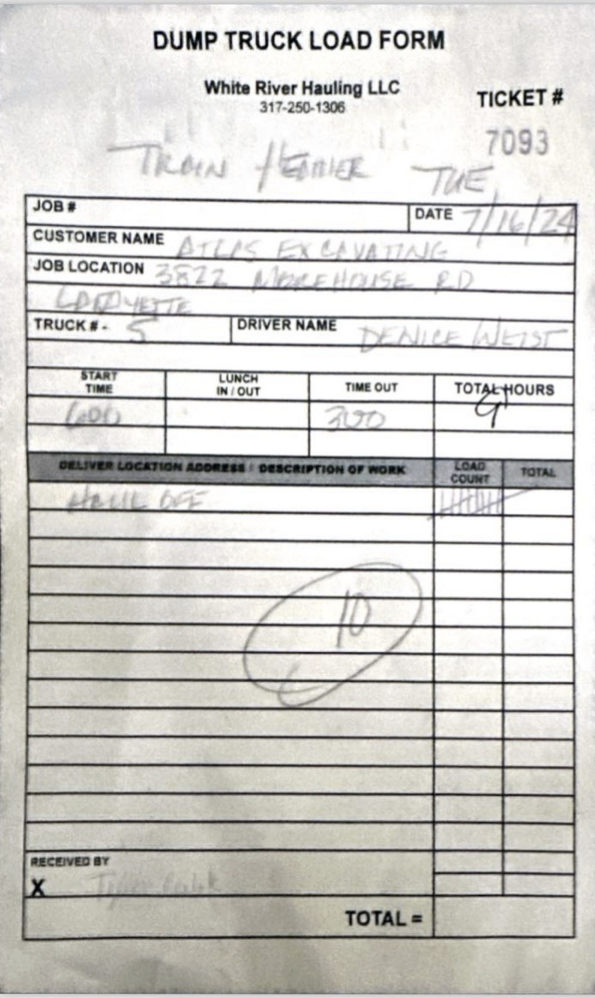 DUMP TRUCK LOAD FORM
White River Hauling LLC
317-250-1306
TICKET #
7093
TRAIN HEAVIER TUE
JOB #
DATE 7/16/24
CUSTOMER NAME ATLAS EXCAVATING
JOB LOCATION 3822 MOREHOUSE RD
LAFAYETTE
TRUCK # - 5 DRIVER NAME DENICE WEIST
START TIME LUNCH IN / OUT TIME OUT TOTAL HOURS
600 300 9
DELIVER LOCATION ADDRESS / DESCRIPTION OF WORK LOAD COUNT TOTAL
HAUL OFF
10
RECEIVED BY
X Tyler
TOTAL =